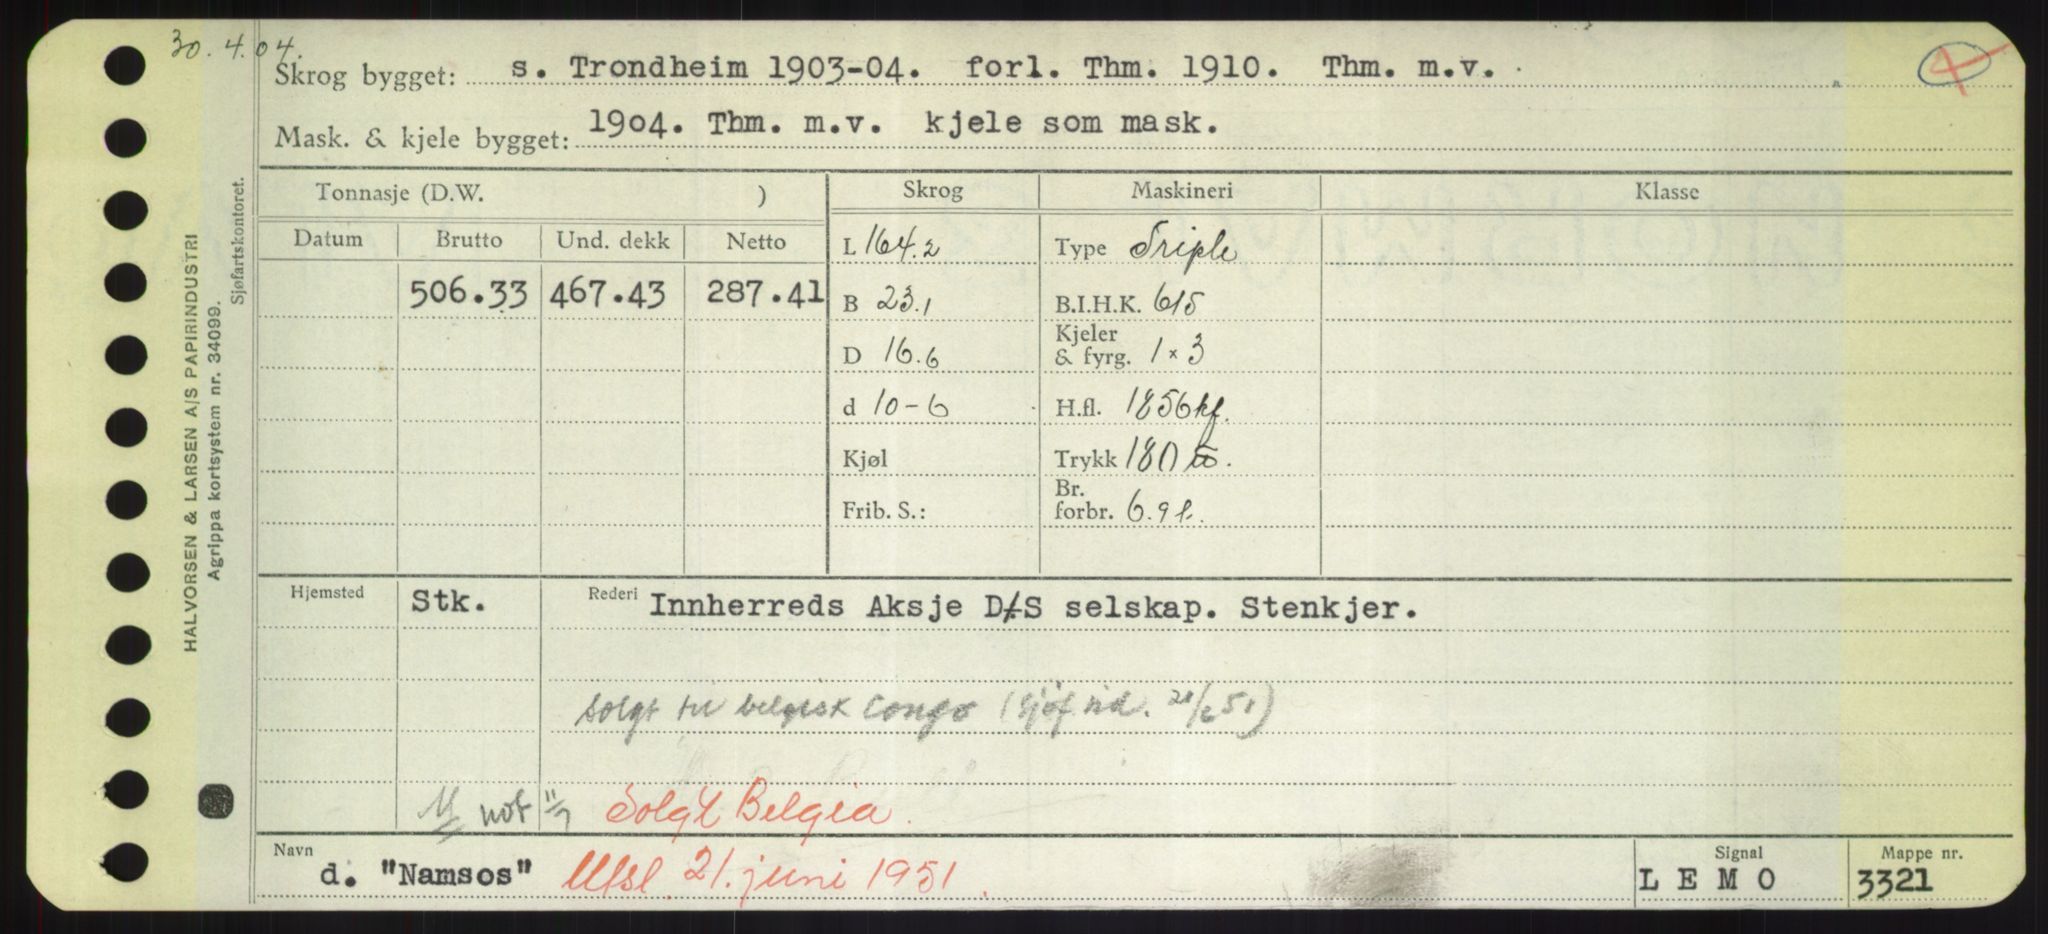 30.4.04.
Skrog bygget: s. Trondheim 1903-04. forl. Thm. 1910. Thm. m.v.
Mask. & kjele bygget: 19o4. Thm. m.v. kjele som mask.
Tonnasje (D.W. ) Skrog Maskineri Klasse
Datum Brutto Und. dekk Netto L 164.2 Type Triple
506.33 467.43 287.41 B 23.1 B.I.H.K. 615
D 16.6 Kjeler & fyrg. 1 × 3
d 10-6 H.fl. 1856 kf.
Kjøl Trykk 180
Frib. S.: Br. forbr. 6.9 t.
Hjemsted Stk. Rederi Innherreds Aksje D/S selskap. Stenkjer.
Solgt til belgisk Congo (Sjøf. tid. 51)
not 11/7 Solgt Belgia.
Navn d. "Namsos" Utsl. 21. juni 1951. Signal L E M O Mappe nr. 3321
HALVORSEN & LARSEN A/S PAPIRINDUSTRI
Agrippa kortsystem nr. 34099. Sjøfartskontoret.